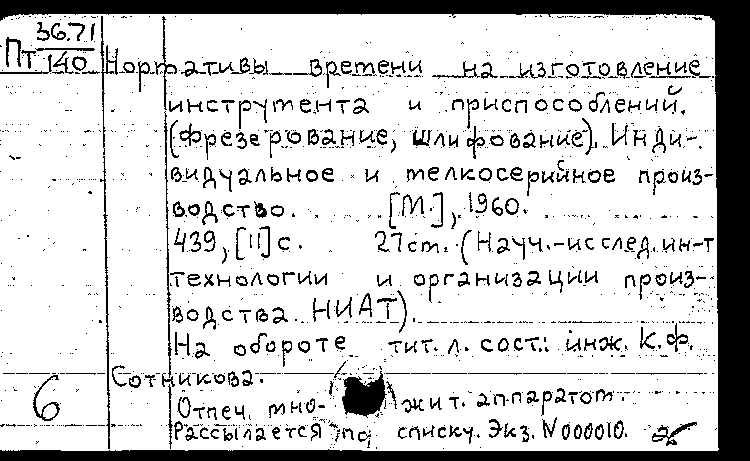 36.71
Пт 140 Нормативы времени на изготовление
инструмента и приспособлений.
(Фрезерование, шлифование). Инди-
видуальное и мелкосерийное произ-
водство. [М.], 1960.
439, [11] с. 27 см. (Науч.-исслед. ин-т
технологии и организации произ-
водства НИАТ).
На обороте тит. л. сост.: инж. К.Ф.
Сотникова.
6 Отпеч. мно- жит. аппаратом.
Рассылается по списку. Экз. N000010.